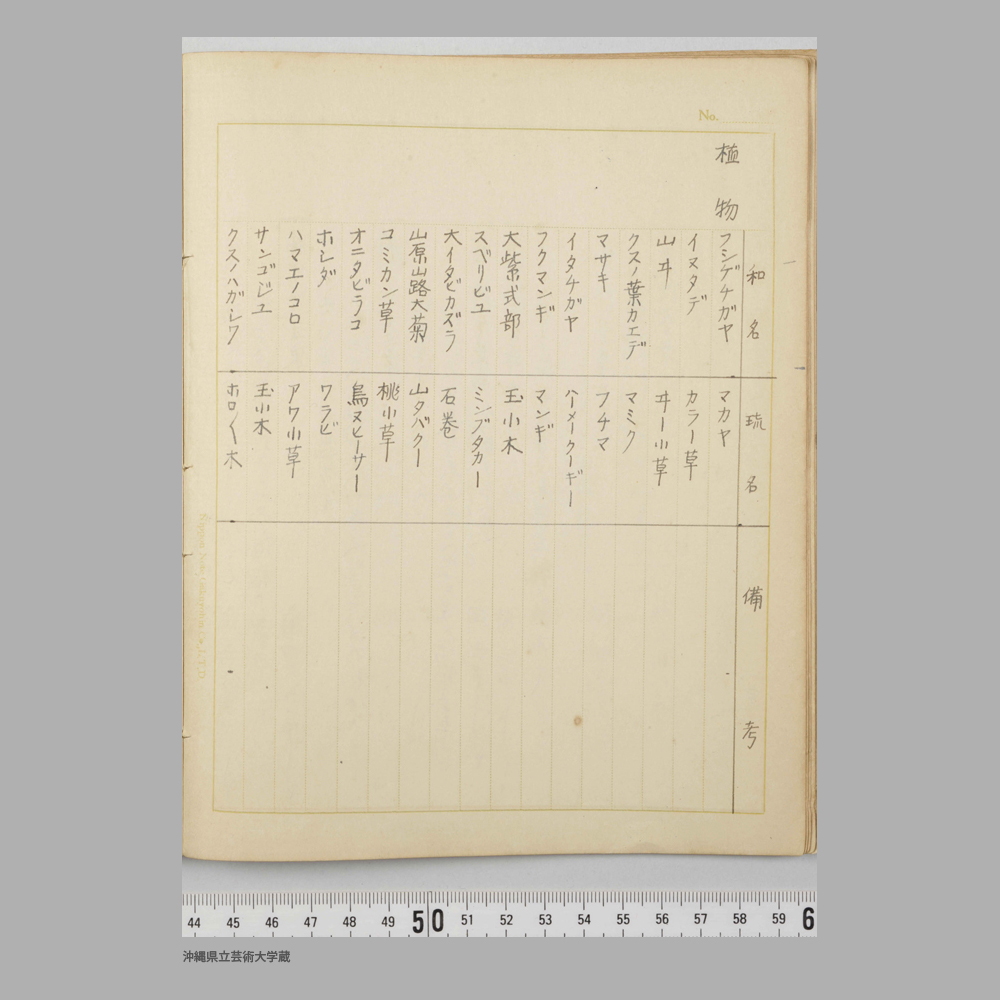 No.
植物
和名 琉名 備考
フシゲチガヤ マカヤ
イヌタデ カラー草
山ヰ ヰー小草
クスノ葉カエデ マミク
マサキ フチマ
イタチガヤ ハーメークーギー
フクマンギ マンギ
大紫式部 玉小木
スベリビユ ミンブタカー
大イタビカズラ 石巻
山原山路大菊 山タバクー
コミカン草 桃小草
オニタビラコ 烏ヌヒーサー
ホシダ ワラビ
ハマエノコロ アワ小草
サンゴジュ 玉小木
クスノハガシワ ホロ〱木
44 45 46 47 48 49 50 51 52 53 54 55 56 57 58 59 6
沖縄県立芸術大学蔵